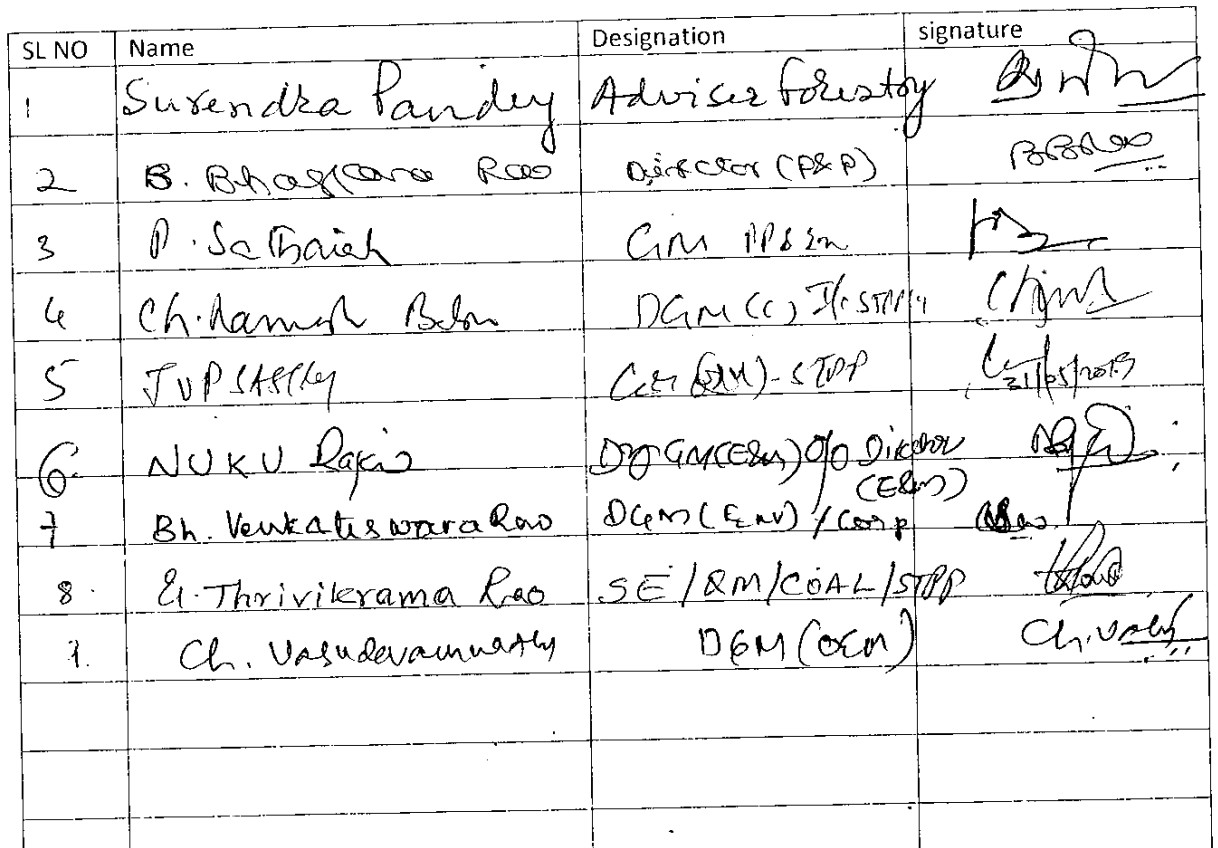 SL NO Name Designation signature
1 Surendra Pandey Adviser Forestry
2 B. Bhaskara Rao Director (P&P) BBRao
3 P. Sathaiah GM
4 Ch. Ramesh Babu DGM (C)
5 JVP SASTRY STPP 31/05/2019
6. NUKU Raju Dy GM(E&M) O/O Director
(E&M)
7 Bh. Venkateswara Rao DGM (Env) / Corp
8. Thrivikrama Rao SE/QM/COAL/STPP
9. Ch. Vasudevamurthy DGM (O&M) Ch. Vasu